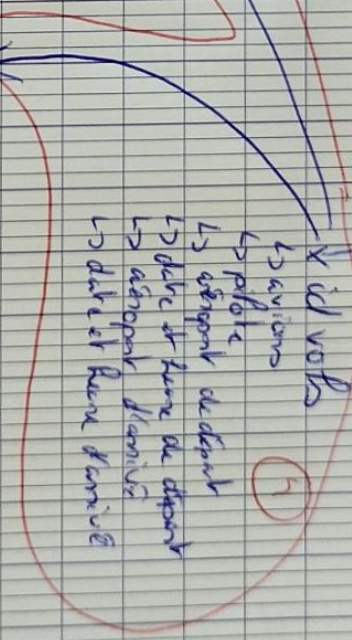 id vols
↳ avions
↳ pilote
↳ aéroport de départ
↳ date et heure de départ
↳ aéroport d'arrivé
↳ date et heure d'arrivé